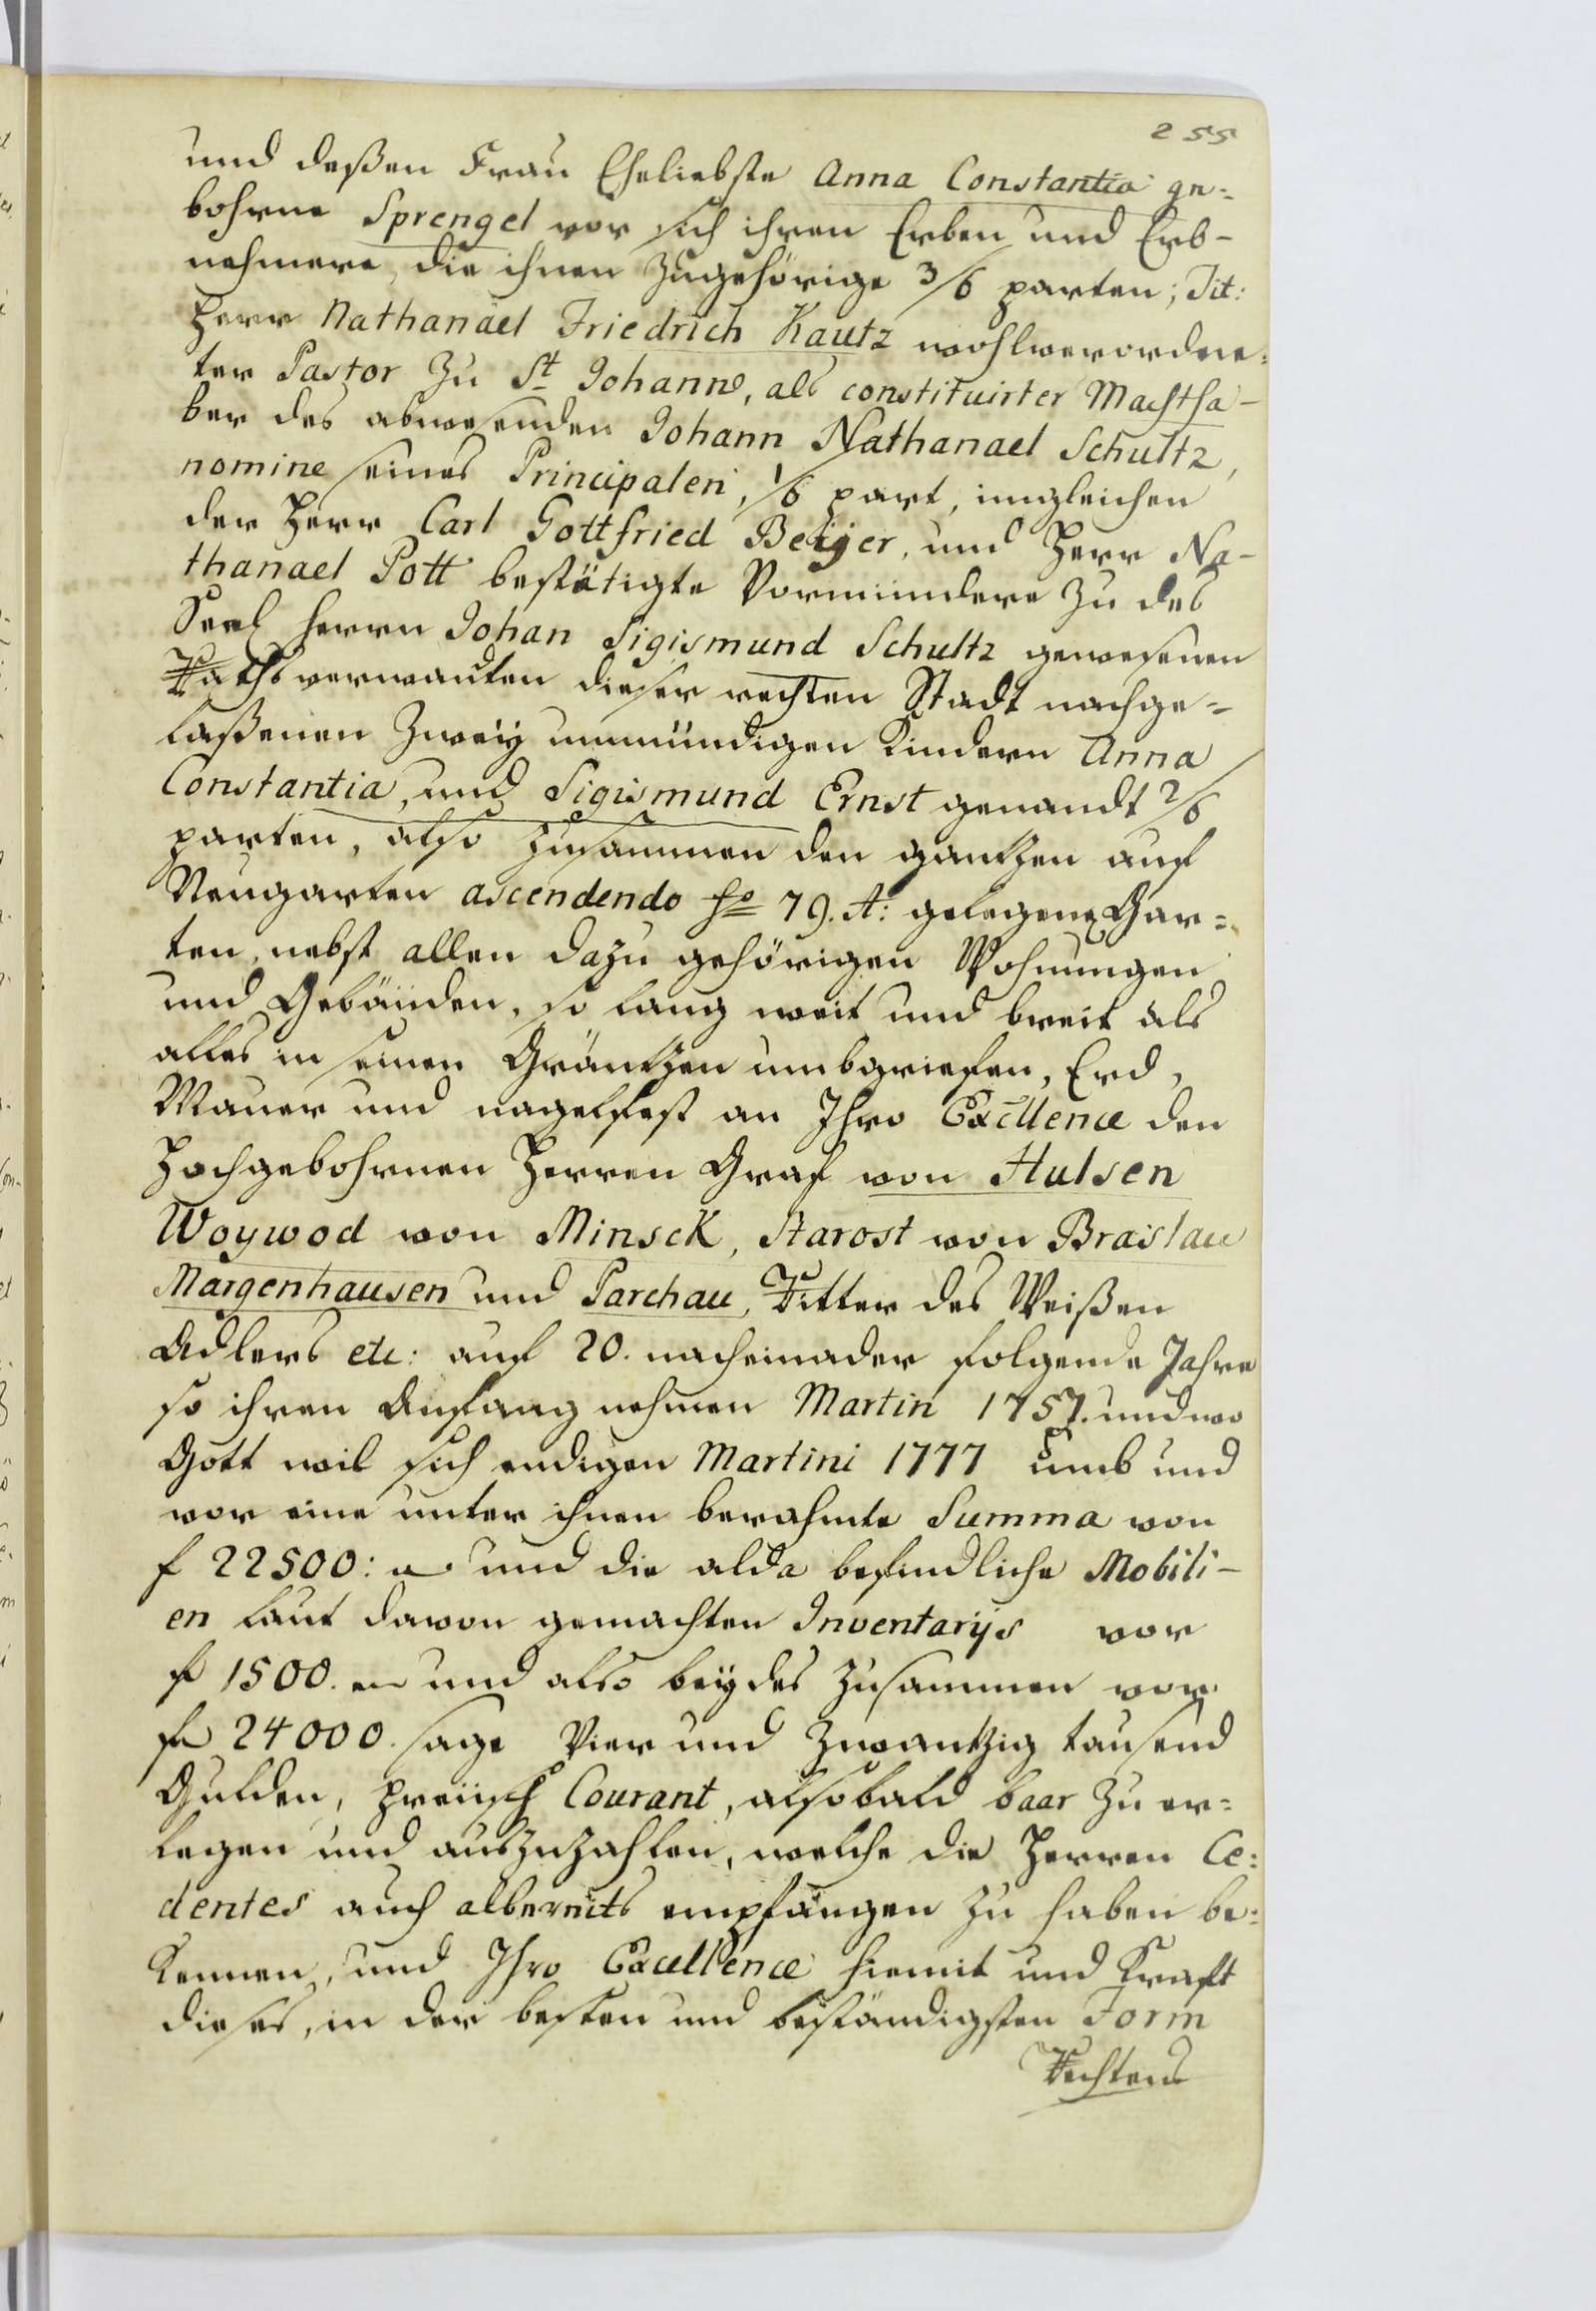 255
und deßen Frau Eheliebste Anna Constantia ge=
bohrne Sprengel vor sich ihren Erben und Erb-
nehmere, die ihnen zugehörige 3/6 parten; Tit:
Herr Nathanäel Friedrich Kautz wohlverordne=
ter Pastor zu St Johann, als constituirter Machtha-
ber des abwesenden Johann Nathanael Schultz,
nomine seines Principalen, 1/6 part, imgleichen
der Herr Carl Gottfried Beijer, und Herr Na-
thanael Pott bestätigte Vormündere zu des
Seel Herrn Johan Sigismund Schultz gewesenen
Rathsverwanten dieser rechten Stadt nachge=
laßenen Zweij unmündigen Kindern Anna
Constantia, und Sigismund Ernst genandt 2/6
parten, also zusammen den gantzen auf
Neugarten ascendendo fo 79. A: gelegene Gar=
ten, nebst allen dazu gehörigen Wohnungen
und Gebäuden, so lang weit und breit als
alles in seinen Gräntzen umbgriefen, Erd,
Mauer und nagelfest an Ihro Excellence den
Hochgebohrnen Herren Graf von Hulsen
Woywod von Minsck, Starost von Braslau
Margenhausen und Parchau, Ritter des Weißen
Adlers etc: auf 20. nacheinader folgende Jahre
so ihren Anfang nehmen Martin 1757. und wo
Gott wil sich endigen Martini 1777 umb und
vor eine unter ihnen berahmte Summa von
f 22500: und die alda befindliche Mobili-
en laut davon gemachten Inventarijs vor
f 1500. und also beijdes zusammen vor
f 24000. sage Vier und zwantzig tausend
Gulden, preüsch Courant, alsobald baar zu er=
legen und auszuzahlen, welche die Herren Ce=
dentes auch albereits empfangen zu haben be=
kennen, und Ihro Excellence hiemit und Krafft
dieses, in der besten und beständigsten Form
Rechtens